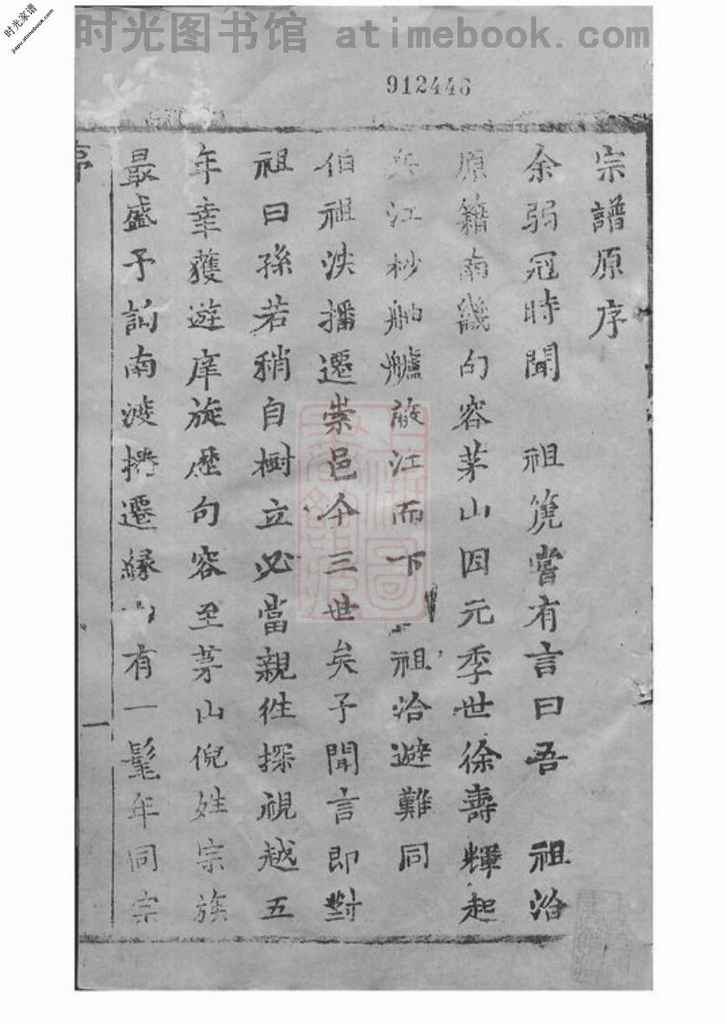 时光家谱
jiapu.atimebook.com
时光图书馆 atimebook.com
912446
宗譜原序
余弱冠時聞 祖箎嘗有言曰吾 祖治
原籍南畿句容茅山因元季世徐壽輝起
兵江杪舳艫蔽江而下 祖洽避難同
伯祖泱播遷崇邑今三世矣予聞言即對
祖曰孫若稍自樹立必當親徃探視越五
年幸獲遊庠旋歷句容至茅山倪姓宗族
最盛予訪南渡播遷緣由有一髦年同宗
序
一